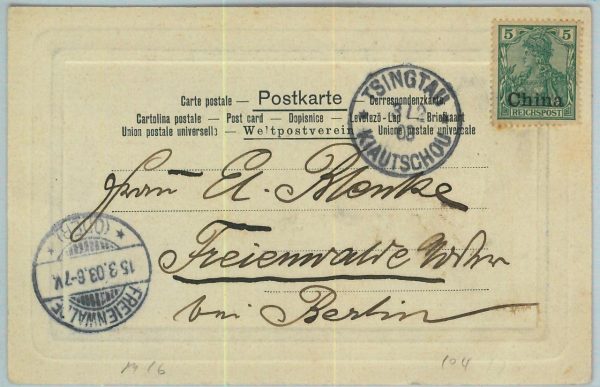 5 5
China
REICHSPOST
TSINGTAU
KIAUTSCHOU
Carte postale — Postkarte — Correspondenzkarte
Cartolina postale — Post card — Dopisnice — Levelező-Lap — Briefkaart
Union postale universelle — Weltpostverein — Unione postale universale
Frau A. Blenke
Freienwalde Oder
bei Berlin
(ODER)
15.3.03.6-7N.
FREIENWALDE
M 16
104